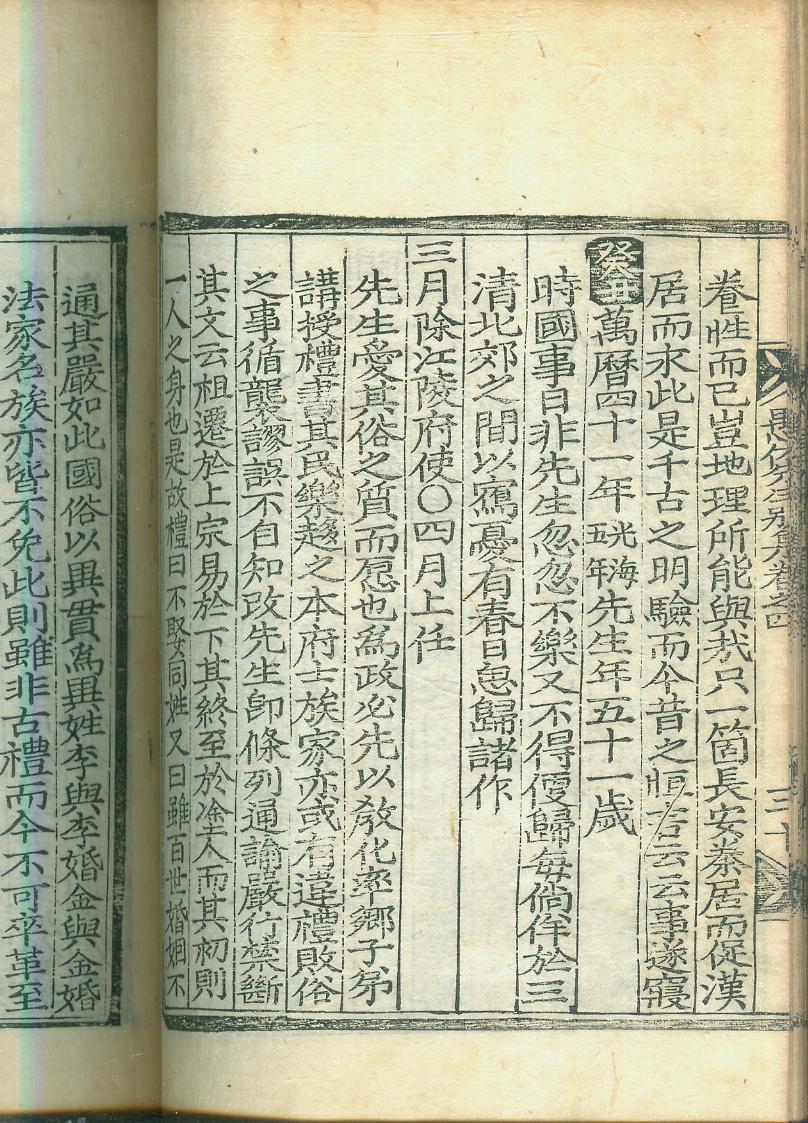 愚伏先生別集卷之四
三十
眷性而已豈地理所能與哉只一箇長安秦居而促漢
居而永此是千古之明驗而今昔之恒言云云事遂寢
癸丑萬曆四十一年光海五年先生年五十一歲
時國事日非先生忽忽不樂又不得便歸每徜徉於三
清北郊之間以寫憂有春日思歸諸作
三月除江陵府使〇四月上任
先生愛其俗之質而愿也爲政必先以敎化率鄕子弟
講授禮書其民樂趨之本府士族家亦或有違禮敗俗
之事循襲謬誤不自知改先生卽條列通諭嚴行禁斷
其文云祖遷於上宗易於下其終至於塗人而其初則
一人之身也是故禮曰不娶同姓又曰雖百世婚姻不
通其嚴如此國俗以異貫爲異姓李與李婚金與金婚
法家名族亦皆不免此則雖非古禮而今不可卒革至